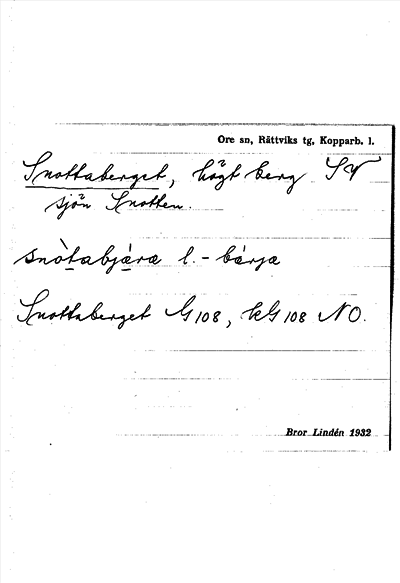 Ore sn, Rättviks tg, Kopparb. l.
Snottaberget, högt berg SV
sjön Snotten.
snòtabjära l. -bárja
Snottaberget G 108, kG 108 NO.
Bror Lindén 1932